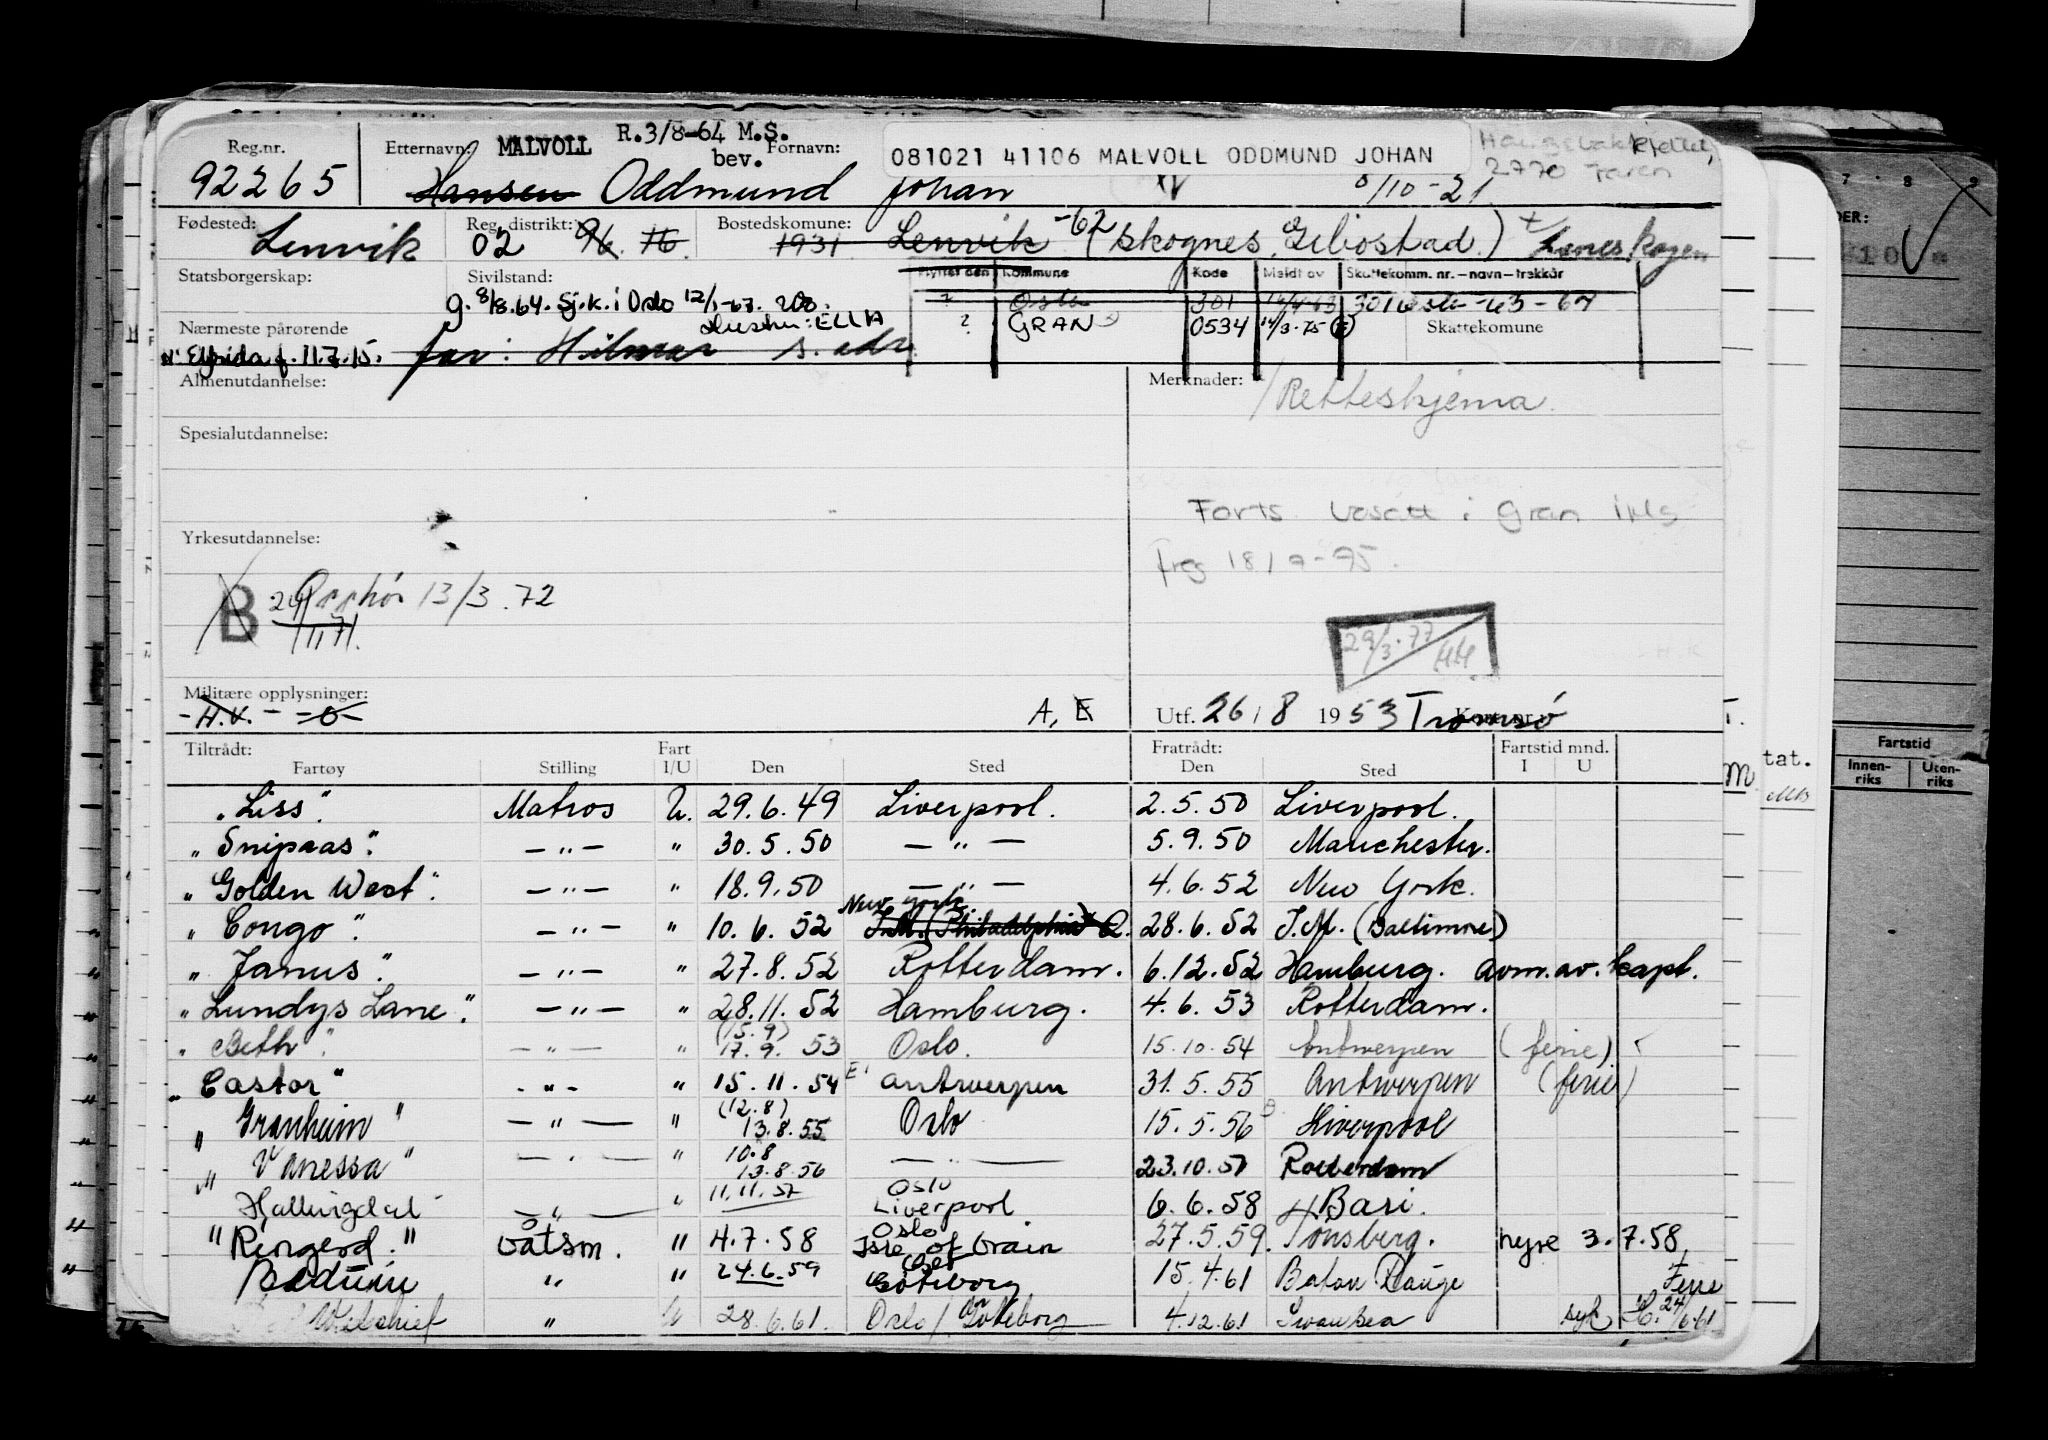 Reg.nr. Etternavn: MALVOLL R.3/8-64 M.S. bev. Fornavn: 081021 41106 MALVOLL ODDMUND JOHAN
2770 Jaren
92265 Hansen Oddmund Johan 8/10-21
Fødested: Lenvik Reg. distrikt: 02 96. 76. Bostedskommune: 1931 Lenvik -62 (Skognes, Gibostad.)
Statsborgerskap: Sivilstand: Flyttet den Kommune Kode Meldt av Skattekomm. nr.-navn-trekkår
g. 8/8.64. Sj.k. i Oslo 12/1-67. ? Oslo 301 301 Oslo -63-64
Hustru: ELLA ? GRAN 0534 14/3.75 Skattekomune
Nærmeste pårørende
Elfrida f. 11.7.15. far: Hilmar s. adr.
Almenutdannelse: Merknader: Retteskjema
Spesialutdannelse:
Forts bosatt i Gran
Yrkesutdannelse:
B Opphør 13/3.72
29/3.77
Militære opplysninger:
-H.V.- =0- A, E Utf. 26/8 1953 Tromsø Kort nr.
Tiltrådt: Fartøy Stilling Fart I/U Den Sted Fratrådt: Den Sted Fartstid mnd. I U
"Liss". Matros U. 29.6.49 Liverpool. 2.5.50 Liverpool.
"Snipaas". — " — " 30.5.50 — " — 5.9.50 Manchester.
"Golden West". — " — " 18.9.50 — " — 4.6.52 New York.
"Congo". — " — " 10.6.52 New York. J.M. (Philadelphia) 28.6.52 J.M. (Baltimore)
"Janus". — " — " 27.8.52 Rotterdam. 6.12.52 Hamburg. avm. av. kapt.
"Lundys Lane". — " — " 28.11.52 Hamburg. 4.6.53 Rotterdam.
"Beth". — " — " (15.9) 17.9.53 Oslo. 15.10.54 Antwerpen (ferie)
"Castor" - " - " 15.11.54 Antwerpen 31.5.55 Antwerpen (ferie)
"Granheim" — " — " (12.8) 13.8.55 Oslo 15.5.56 Liverpool
"Vanessa" — " — " 10.8 13.8.56 — " — 23.10.57 Rotterdam
Hallingdal — " — " 11.11.57 Oslo Liverpool 6.6.58 Bari.
"Ringerd." båtsm. " 4.7.58 Oslo Isle of Grain 27.5.59. Tønsberg. hyre 3.7.58
Beduin " " 24.6.59 Göteborg 15.4.61 Baton Rouge Ferie
" 28.6.61. Oslo/Göteborg 4.12.61 Swansea syk
Fartstid
Innenriks Utenriks